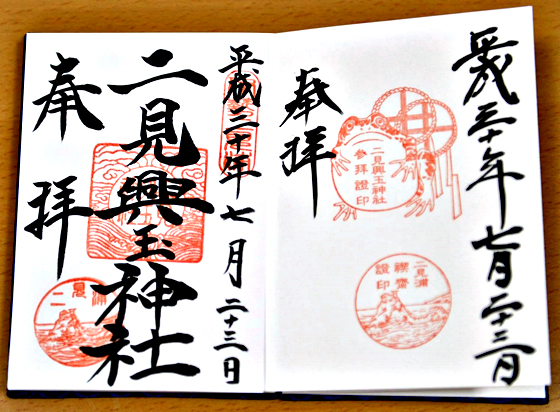 平成三十年七月二十三日
二見興玉神社
参拜證印
二見浦
證印
奉拝
平成三十年七月二十三日
二見興玉神社
奉拝